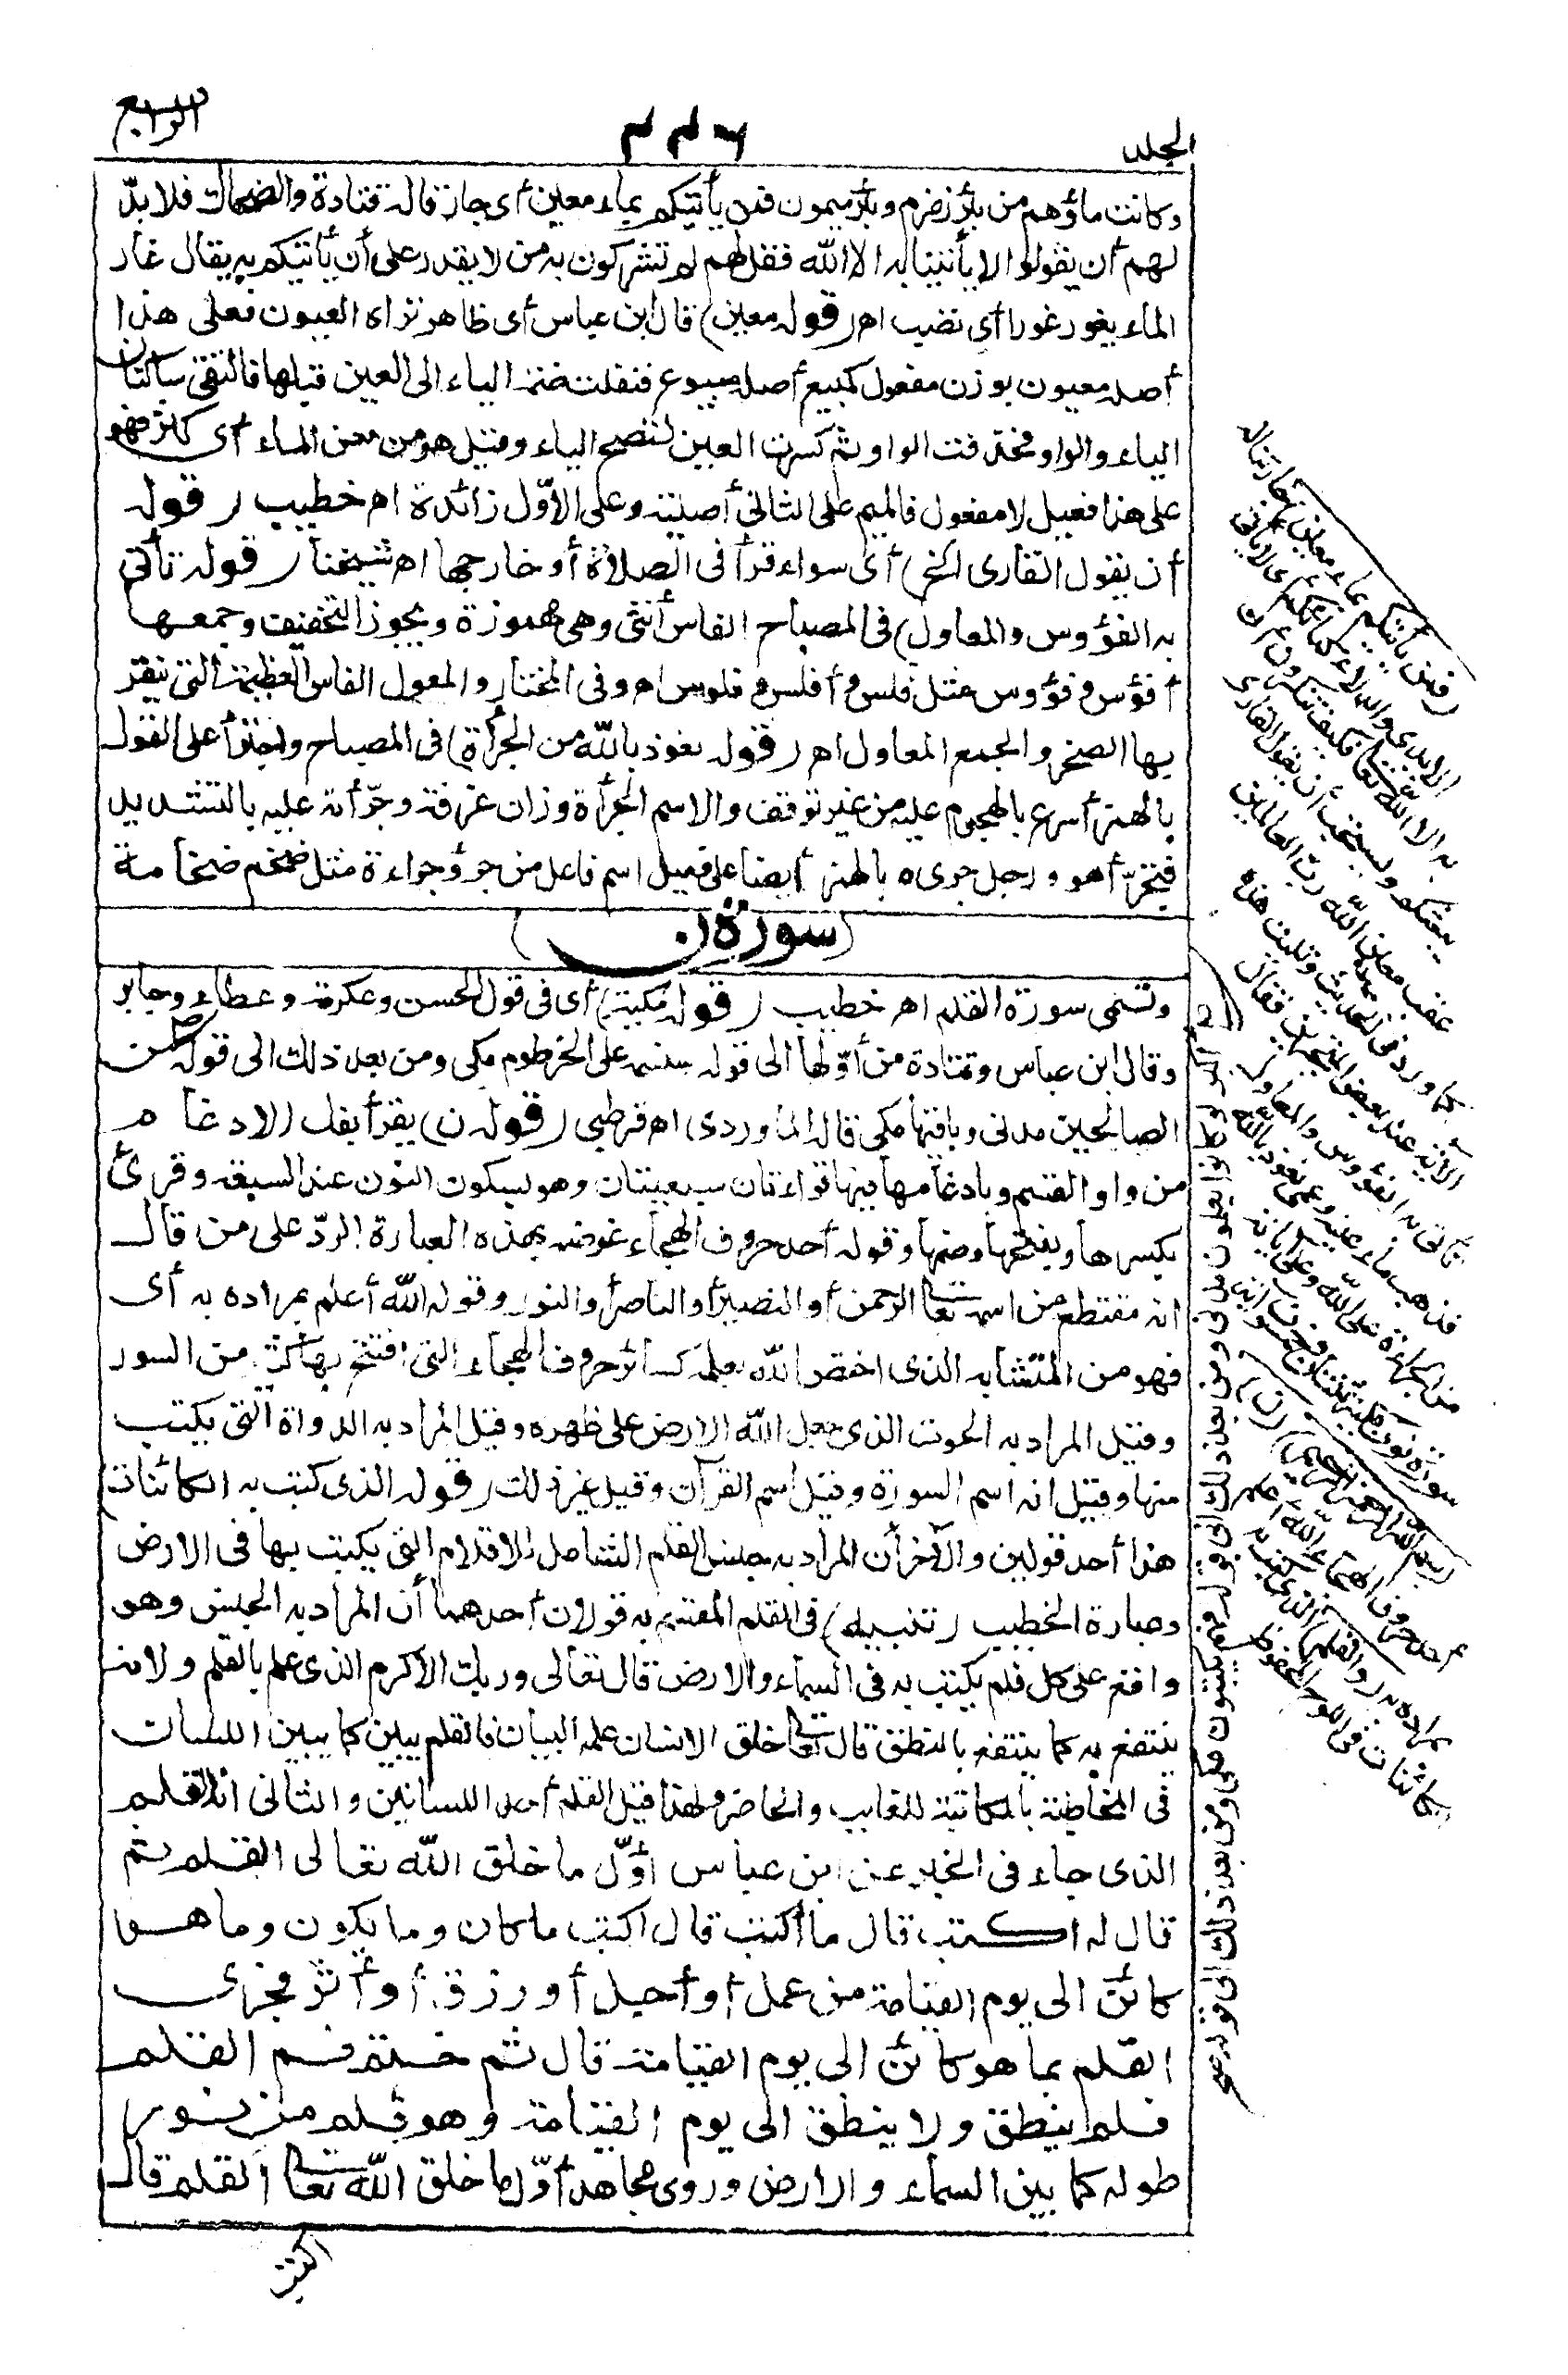 المجلد
٣٨٢
الرابع
وكانت ماؤهم من بئر زمزم وبئر ميمون فمن يأتيكم بماء معين أى جار قاله قتادة والضحاك فلا بدّ
لهم أن يقولوا لا يأتينا به الا الله فقل لهم لم تشركون به من لا يقدر على أن يأتيكم به يقال غار
الماء يغور غورا أى نضب اهـ (قوله معين) قال ابن عباس أى ظاهر تراه العيون فعلى هذا
أصله معيون بوزن مفعول كمبيع أصله مبيوع فنقلت ضمة الياء الى العين قبلها فالتقى ساكنان
الياء والواو فحذفت الواو ثم كسرت العين لتصح الياء وقيل هو من معن الماء أى كثر فهو
على هذا فعيل لا مفعول فالميم على الثانى أصلية وعلى الأوّل زائدة اهـ خطيب (قوله
أن يقول القارى الخ) أى سواء قرأ فى الصلاة أو خارجها اهـ شيخنا (قوله تأتى
به الفؤوس والمعاول) فى المصباح الفاس أنثى وهى مهموزة ويجوز التخفيف وجمعها
أفؤس وفؤوس مثل فلس وأفلس وفلوس اهـ وفى المختار والمعول الفاس العظيمة التى ينقر
بها الصخر والجمع المعاول اهـ (قوله نعوذ بالله من الجرأة) فى المصباح واجترأ على القول
بالهمز أسرع بالهجوم عليه من غير توقف والاسم الجرأة وزان غرفة وجرّأته عليه بالتشديد
فتجرّأ هو ورجل جرىء بالهمز أيضا على فعيل اسم فاعل من جرؤ جراءة مثل ضخم ضخامة
(سورة ن)
وتسمى سورة القلم اهـ خطيب (قوله مكية) أى فى قول الحسن وعكرمة وعطاء وجابر
وقال ابن عباس وقتادة من أوّلها الى قوله سنسمه على الخرطوم مكى ومن بعد ذلك الى قوله من
الصالحين مدنى وباقيها مكى قاله الماوردى اهـ قرطبى (قوله ن) يقرأ بفك الادغام
من واو القسم وبادغامها فيها قراءتان سبعيتان وهو بسكون النون عند السبعة وقرئ
بكسرها وبفتحها وضمها وقوله أحد حروف الهجاء غرضه بهذه العبارة الردّ على من قال
انه مقتطع من اسمه تعا الرحمن أو النصير أو الناصر أو النور وقوله الله أعلم بمراده به أى
فهو من المتشابه الذى اختص الله بعلمه كسائر حروف الهجاء التى افتتح بها كثير من السور
وقيل المراد به الحوت الذى جعل الله الارض على ظهره وقيل المراد به الدواة التى يكتب
منها وقيل انه اسم السورة وقيل اسم القرآن وقيل غير ذلك (قوله الذى كتب به الكائنات)
هذا أحد قولين والآخر أن المراد به جنس القلم الشامل للاقلام التى يكتب بها فى الارض
وعبارة الخطيب (تنبيه) فى القلم المقسم به قولان أحدهما أن المراد به الجنس وهو
واقع على كل قلم يكتب به فى السماء والارض قال تعالى وربك الأكرم الذى علم بالقلم ولانه
ينتفع به كما ينتفع بالنطق قال تعا خلق الانسان علمه البيان فالقلم يبين كما يبين اللسان
فى المخاطبة بالمكاتبة للغايب والحاضر ولهذا قيل القلم أحد اللسانين والثانى انه القلم
الذى جاء فى الخبر عن ابن عباس أوّل ما خلق الله تعالى القلم ثم
قال له اكتب قال ما أكتب قال اكتب ما كان وما يكون وما هو
كائن الى يوم القيامة من عمل أو أجل أو رزق أو أثر فجرى
القلم بما هو كائن الى يوم القيامة قال ثم ختم فم القلم
فلم ينطق ولا ينطق الى يوم القيامة وهو قلم من نور
طوله كما بين السماء والارض وروى مجاهد أوّل ما خلق الله تعا القلم قال
اكتب
(فمن يأتيكم بماء معين) جار تناله
الايدى والدلاء كمائكم أى لا يأتى
به الا الله تعا فكيف تنكرون أن
يبعثكم ويستحب أن يقول القارى
عقب معين الله رب العالمين
كما ورد فى الحديث وتليت هذه
الآية عند بعض المتجبرين فقال
تأتى به الفؤوس والمعاول
فذهب ماء عينه وعمى نعوذ بالله
من الجراءة على الله وعلى آياته
سورة ن مكية ثنتان وخمسون آية
(بسم الله الرحمن الرحيم) (ن)
أحد حروف الهجاء الله أعلم
بمراده به (والقلم) الذى كتب به
الكائنات فى اللوح المحفوظ